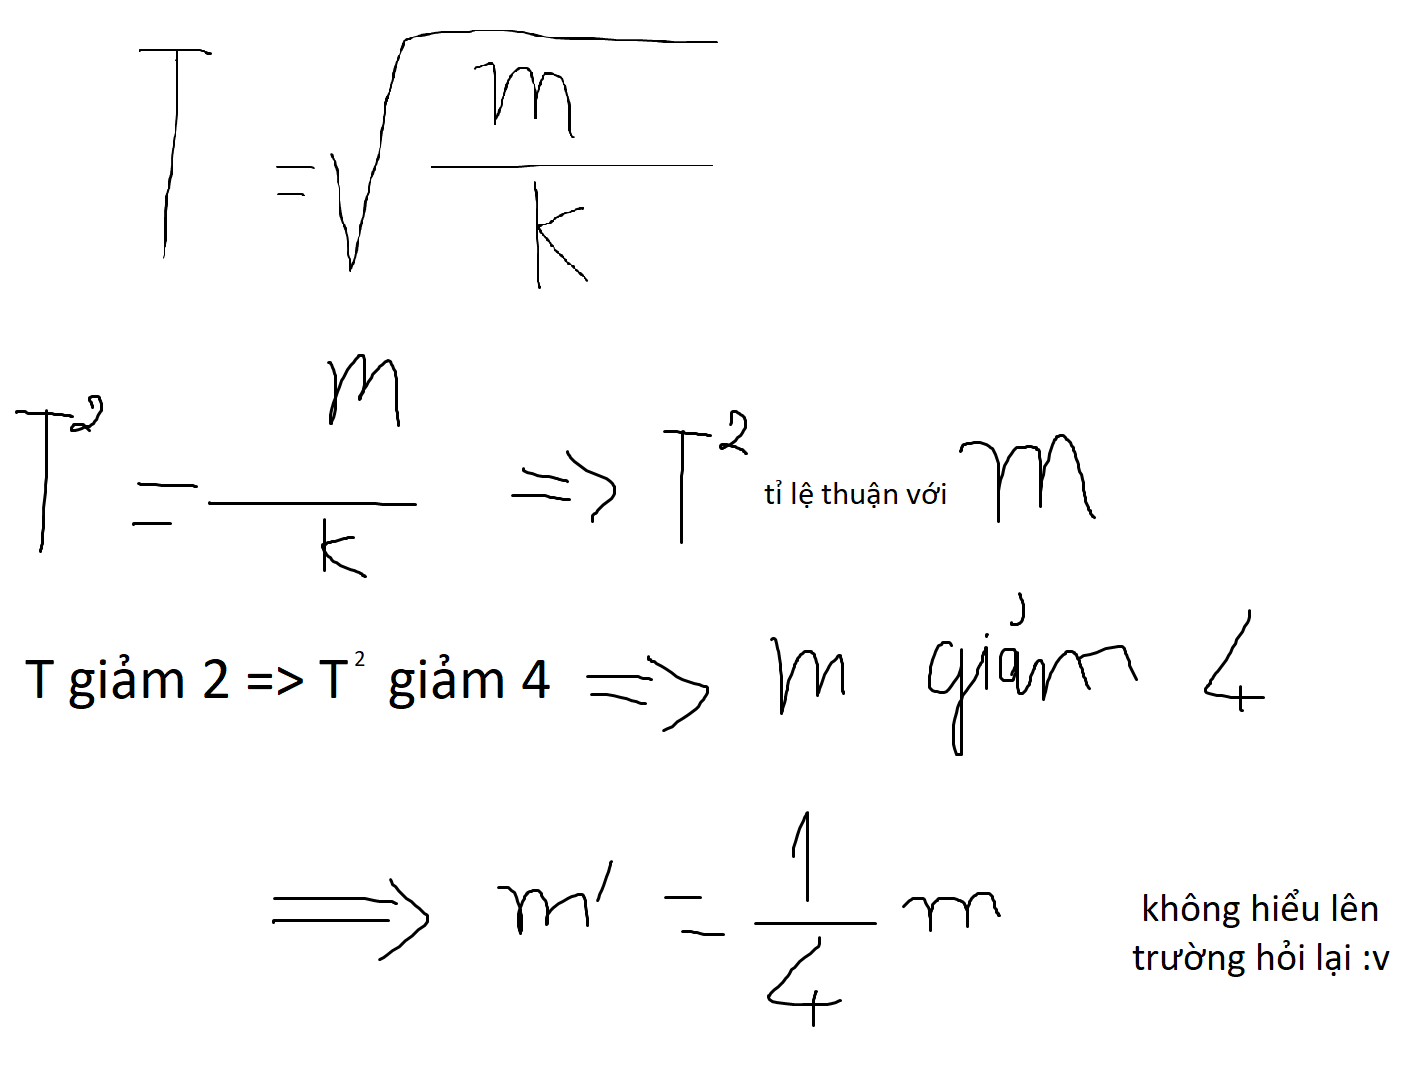 T = √(m/k)
T² = m/k => T² tỉ lệ thuận với m
T giảm 2 => T² giảm 4 => m giảm 4
=> m' = 1/4 m
không hiểu lên
trường hỏi lại :v